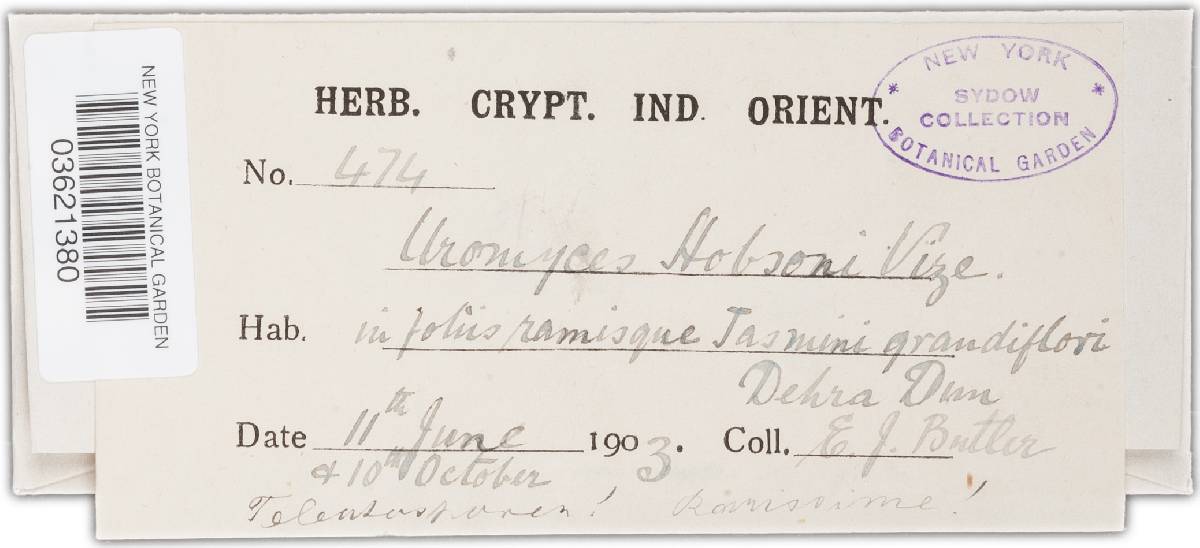 NEW YORK BOTANICAL GARDEN
03621380
NEW YORK
SYDOW
COLLECTION
BOTANICAL GARDEN
HERB. CRYPT. IND. ORIENT.
No. 474
Uromyces Hobsoni Vize.
Hab. in foliis ramisque Jasmini grandiflori
Dehra Dun
Date 11th June 1903. Coll. E. J. Butler
& 10th October
Teleutosporen! rarissime!